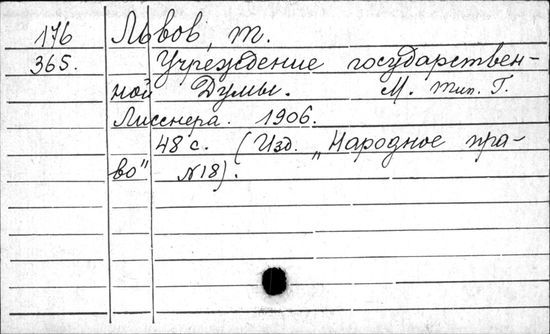 176 Львов, Т.
365. Учреждение государствен-
ной Думы. М. Тип. Г.
Лисснера. 1906.
48 с. (Изд. „Народное пра-
во" N18).